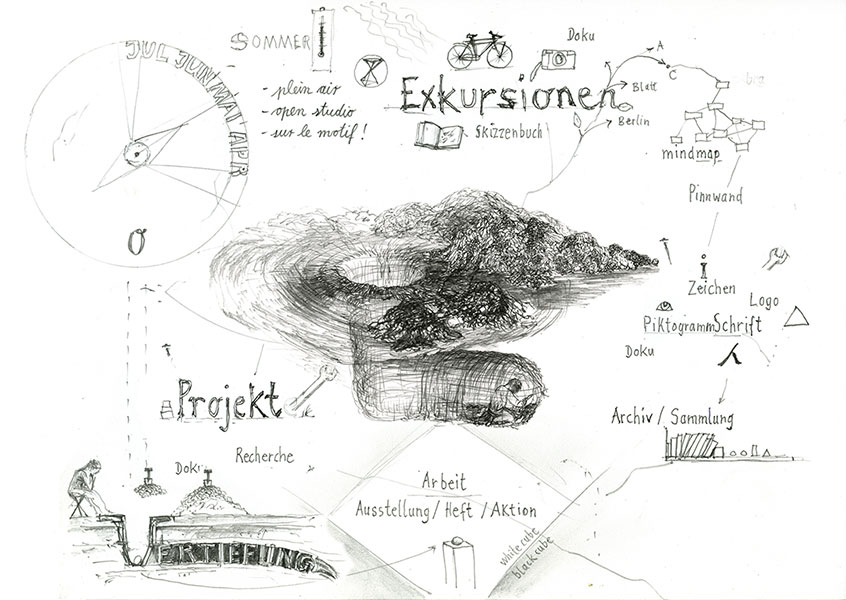 JUL JUN MAI APR
O
SOMMER
- plein air
- open studio
- sur le motif!
Doku
Exkursionen
Skizzenbuch
A
C
Blatt
Berlin
mindmap
Pinnwand
i
Zeichen
Logo
Piktogramm Schrift
Doku
Archiv / Sammlung
Projekt
Recherche
Dok
Arbeit
Ausstellung / Heft / Aktion
white cube
black cube
VERTIEFUNG